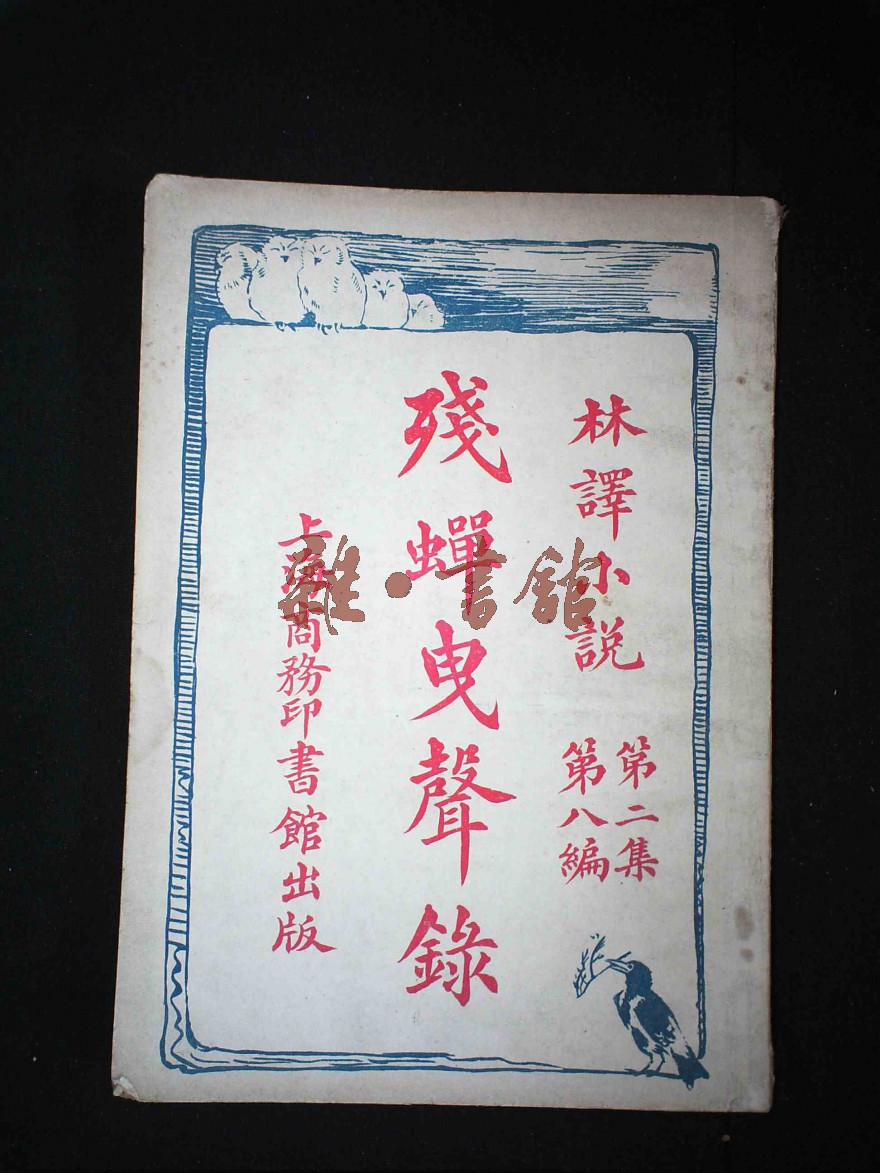 林譯小説
第二集
第八編
殘蟬曳聲錄
上海商務印書館出版
雜·書館